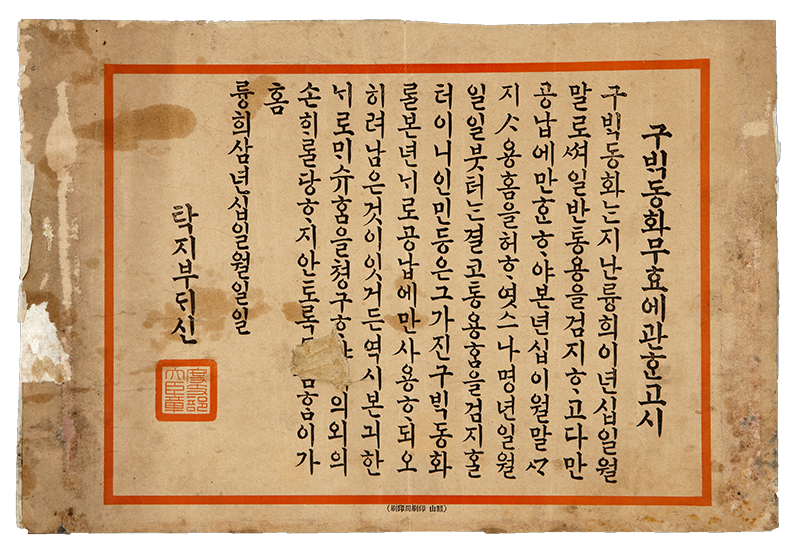 구빅동화무효에관ᄒᆞᆫ고시
구빅동화ᄂᆞᆫ지난륭희이년십일월
말로쎠일반통용을검지ᄒᆞ고다만
공납에만ᄒᆞᆫᄒᆞ야본년십이월말ᄭᆞ
지ᄉᆞ용홈을허ᄒᆞ엿스나명년일월
일일붓터ᄂᆞᆫ결코통용홈을검지ᄒᆞᆯ
터이니인민등은그가진구빅동화
ᄅᆞᆯ본년ᄂᆡ로공납에만사용ᄒᆞ되오
히려남은것이잇거든역시본긔한
ᄂᆡ로ᄆᆡ슈홈을쳥구ᄒᆞ야의외의
손ᄒᆡᄅᆞᆯ당ᄒᆞ지안토록홈이가
홈
륭희삼년십일월일일
탁지부ᄃᆡ신
度支部大臣章
(刷印局刷印 山龍)